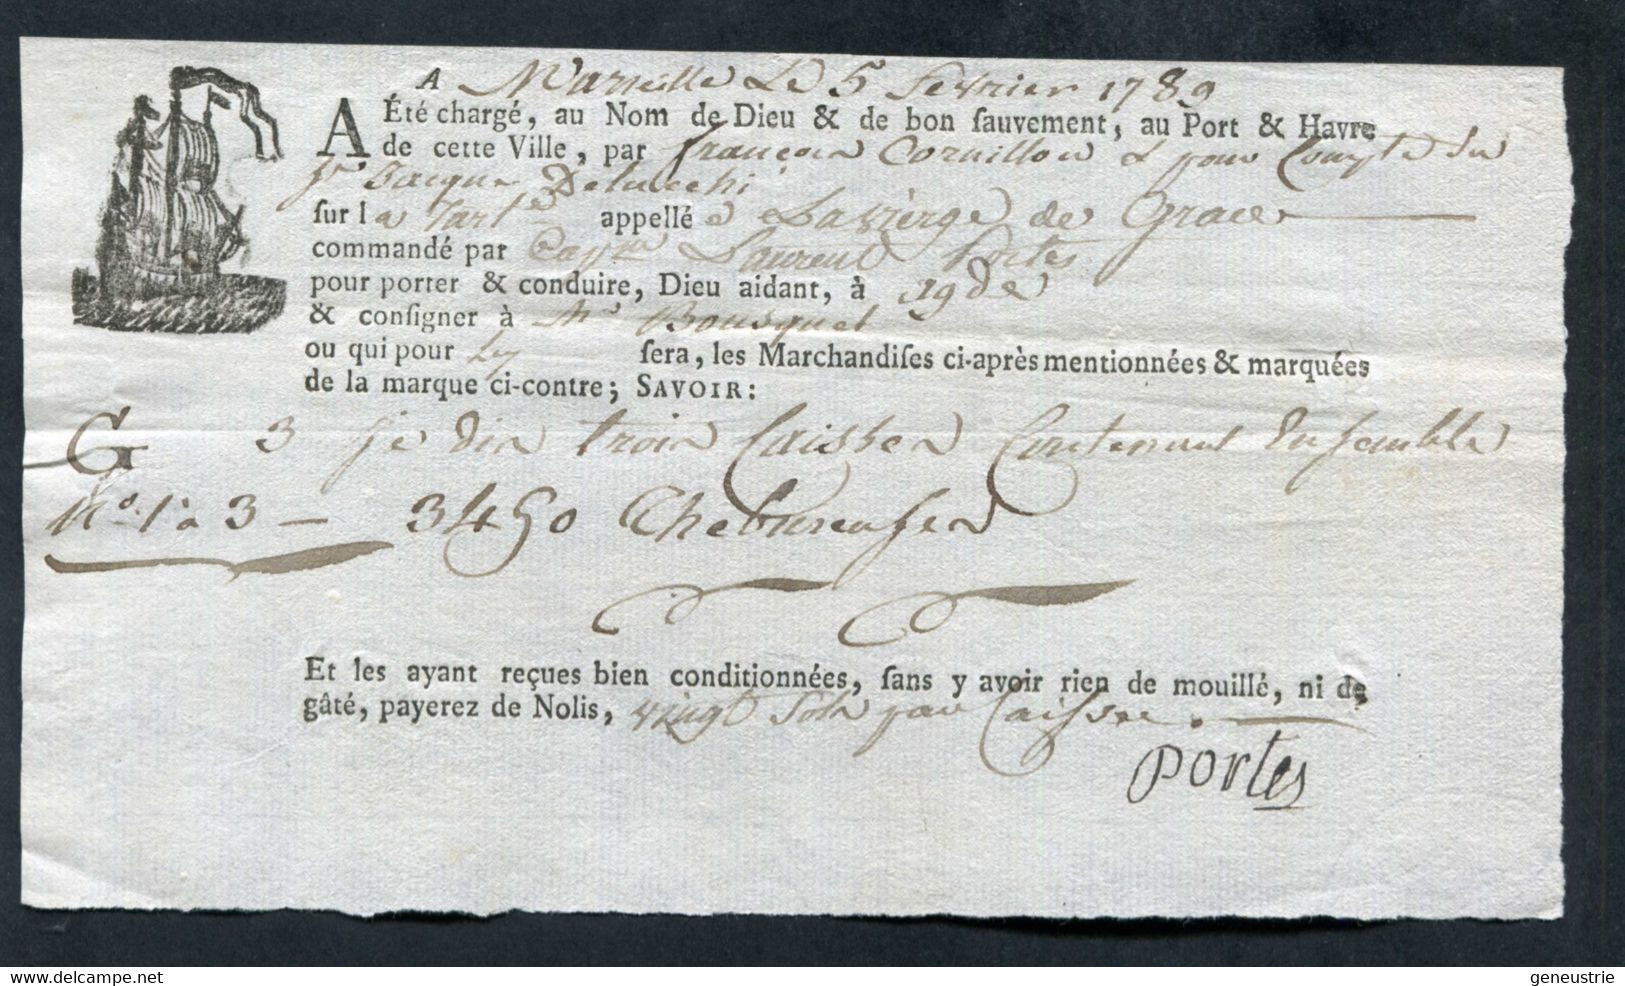 A Marseille Le 5 fevrier 1789
A Été chargé, au Nom de Dieu & de bon ſauvement, au Port & Havre
de cette Ville, par françois Cornillon & pour Compte du
Sr. Jacques Delucchi
ſur la Tartne appellée La vierge de Grace
commandé par Capne Laurent Portes
pour porter & conduire, Dieu aidant, à agde
& conſigner à Mr Bousquet
ou qui pour Luy ſera, les Marchandiſes ci-après mentionnées & marquées
de la marque ci-contre; SAVOIR:
G 3 je dis trois Caisses Contenant Ensemble
No. 1 a 3 — 3450
Et les ayant reçues bien conditionnées, ſans y avoir rien de mouillé, ni de
gâté, payerez de Nolis, vingt Sols par Caisse.
Portes
www.delcampe.net
geneustrie